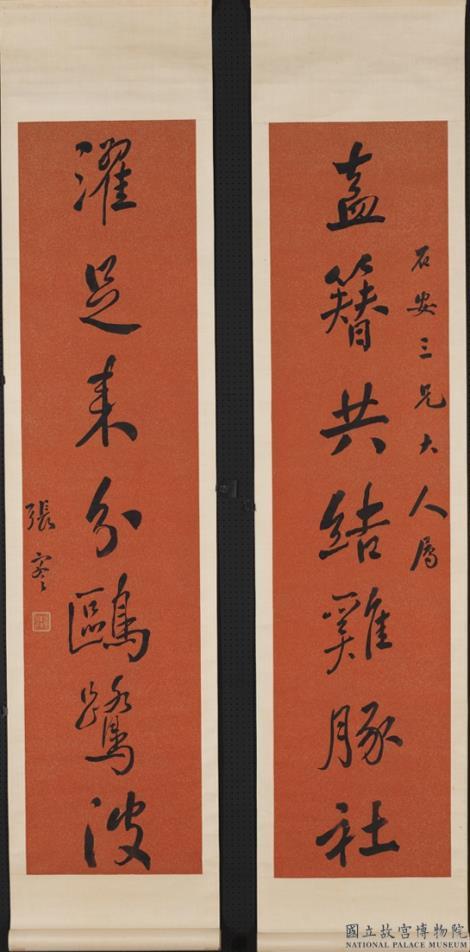 石安三兄大人屬
盍簪共結雞豚社
濯足來分鷗鷺波
張謇
國立故宮博物院
NATIONAL PALACE MUSEUM